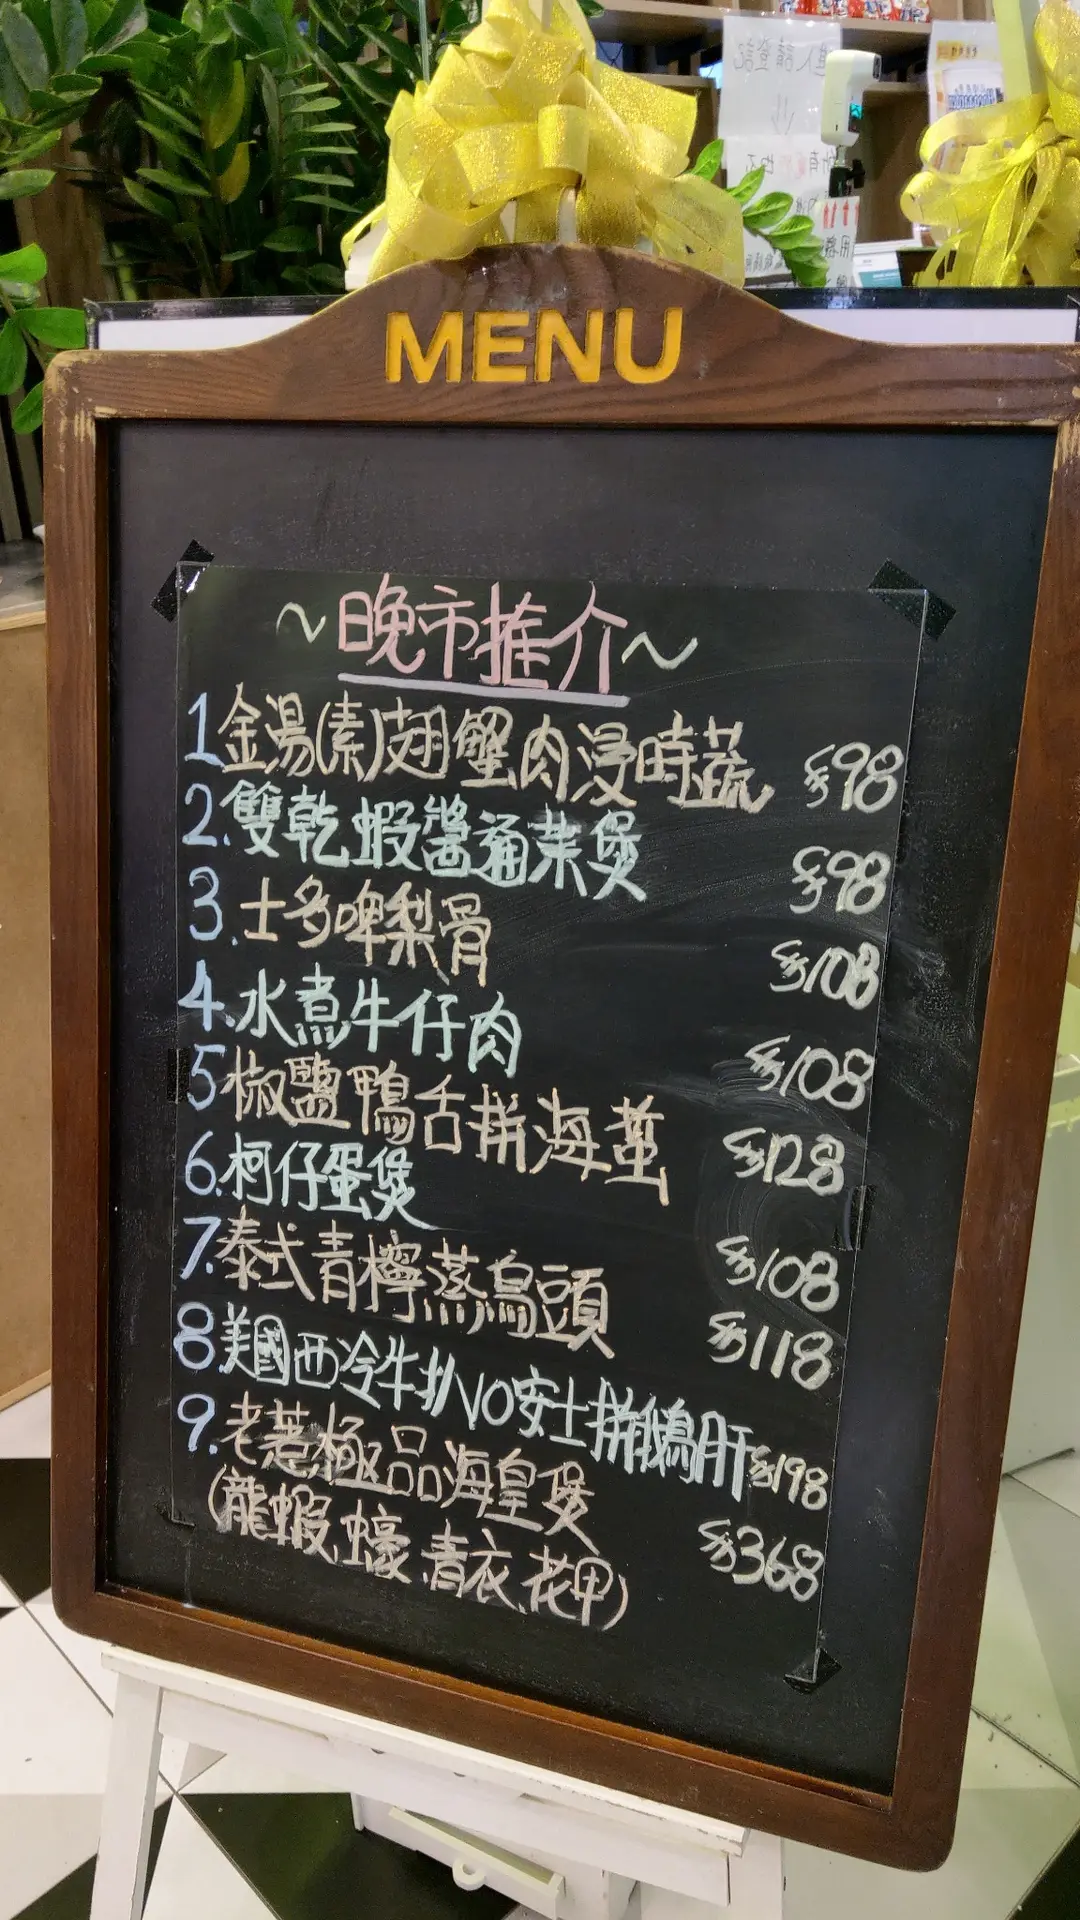 進入請登記
MENU
~晚市推介~
1金湯(素)翅蟹肉浸時蔬 $98
2.雙乾蝦醬通菜煲 $98
3.士多啤梨骨 $108
4.水煮牛仔肉 $108
5椒鹽鴨舌拼海蜇 $128
6.柯仔蛋煲 $108
7.泰式青檸蒸烏頭 $118
8美國西冷牛扒VO安士拼鵝肝 $198
9.老惹極品海皇煲 $368
(龍蝦、蠔、青衣、花甲)